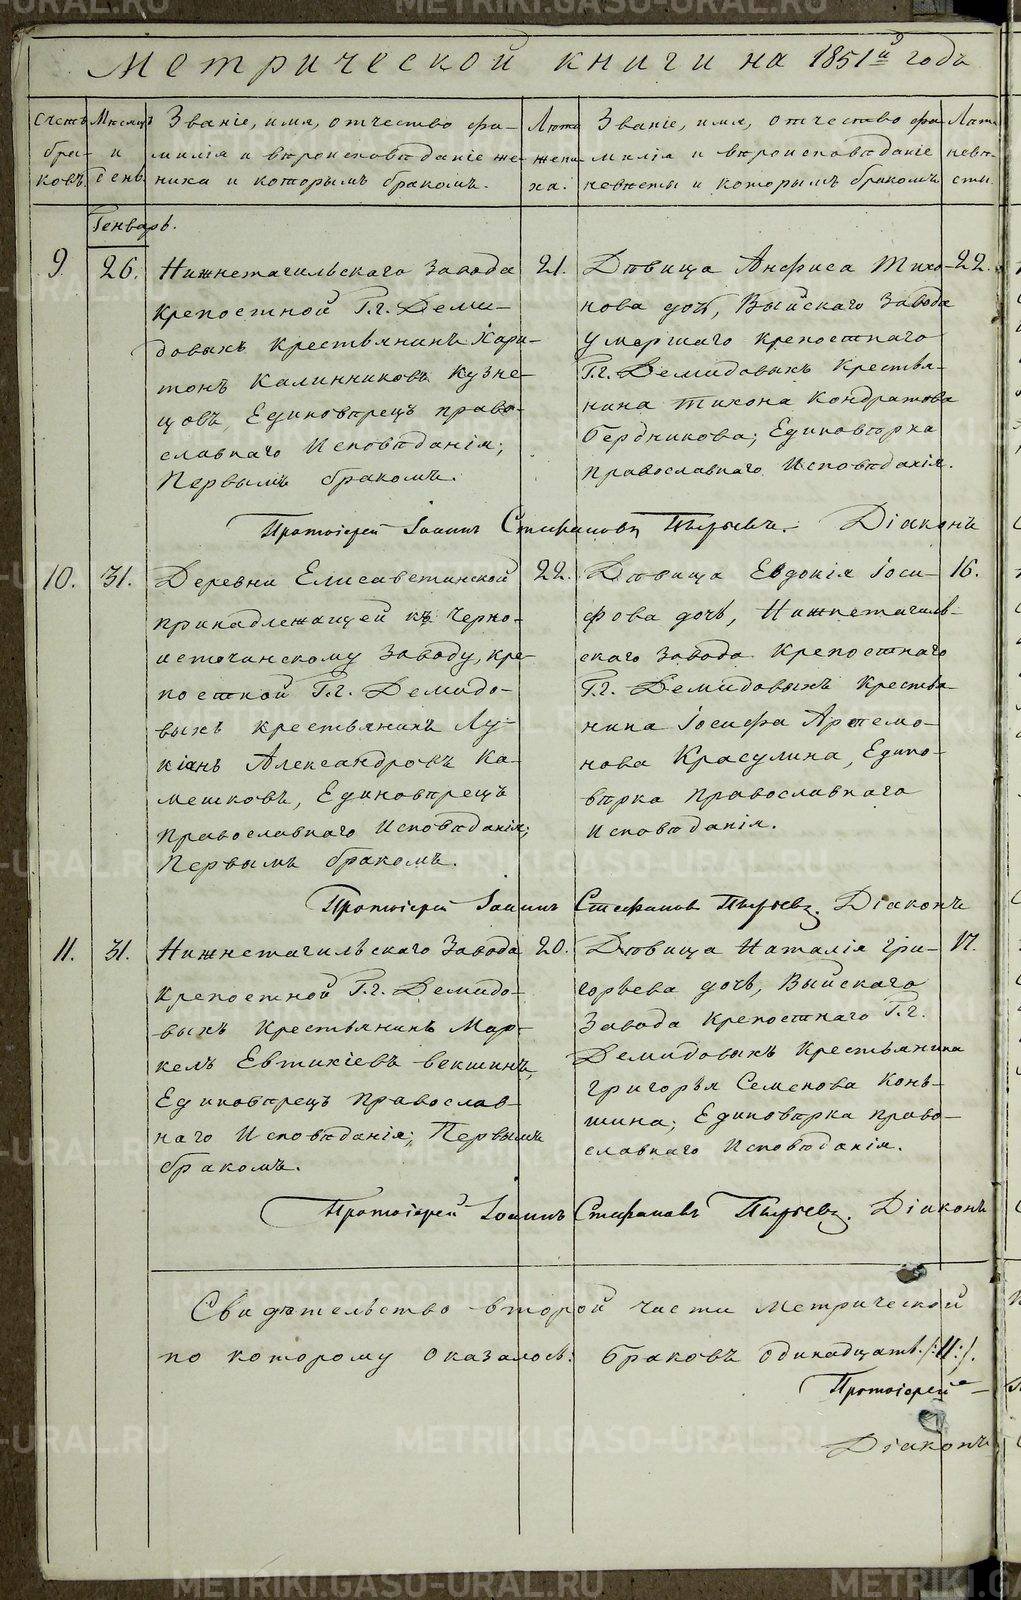 Метрической книги на 1851й годъ
Счетъ браковъ.
Мѣсяцъ и день.
Званіе, имя, отчество, фамилія и вѣроисповѣданіе жениха и которымъ бракомъ.
Лѣта жениха.
Званіе, имя, отчество фамилія и вѣроисповѣданіе невѣсты и которымъ бракомъ
Лѣта невѣсты
Генварь.
9.
26.
Нижнетагильскаго завода
крепостной Г.г. Деми-
довыхъ крестьянинъ Хари-
тонъ Калинниковъ Кузне-
цовъ, Единовѣрецъ право-
славнаго Исповѣданія;
Первымъ бракомъ.
21.
Дѣвица Анфиса Тихо-
нова дочь, Выйскаго завода
умершаго крепостнаго
Г.г. Демидовыхъ крестья-
нина Тихона Кондратова
Бердникова; Единовѣрка
православнаго Исповѣданія.
22.
Протоіерей Іоаннъ Стефановъ Пырьевъ. Діаконъ
10.
31.
Деревни Елисаветинской
принадлежащей къ Черно-
источинскому заводу, кре-
постной Г.г. Демидо-
выхъ крестьянинъ Лу-
кіанъ Александровъ Ка-
мешковъ, Единовѣрецъ
Православнаго Исповѣданія;
Первымъ бракомъ.
22.
Дѣвица Евдокія Іоси-
фова дочь, Нижнетагиль-
скаго завода крепостнаго
Г.г. Демидовыхъ крестья-
нина Іосифа Артемо-
нова Красулина, Едино-
вѣрка православнаго
исповѣданія.
16.
Протоіерей Іоаннъ Стефановъ Пырьевъ. Діаконъ
11.
31.
Нижнетагильскаго завода
крепостной Г.г. Демидо-
выхъ крестьянинъ Мар-
келъ Евтихіевъ Векшинъ,
Единовѣрецъ православ-
наго Исповѣданія; Первымъ
бракомъ.
20.
Дѣвица Наталія Гри-
горьева дочь, Выйскаго
завода крепостнаго Г.г.
Демидовыхъ крестьянина
Григорья Семенова Конь-
шина; Единовѣрка право-
славнаго Исповѣданія.
17.
Протоіерей Іоаннъ Стефановъ Пырьевъ. Діаконъ
Свидѣтельство второй части Метрической
по которому оказалось: браковъ одинадцать /:11:/.
Протоіерей
Діаконъ
METRIKI.GASO-URAL.RU